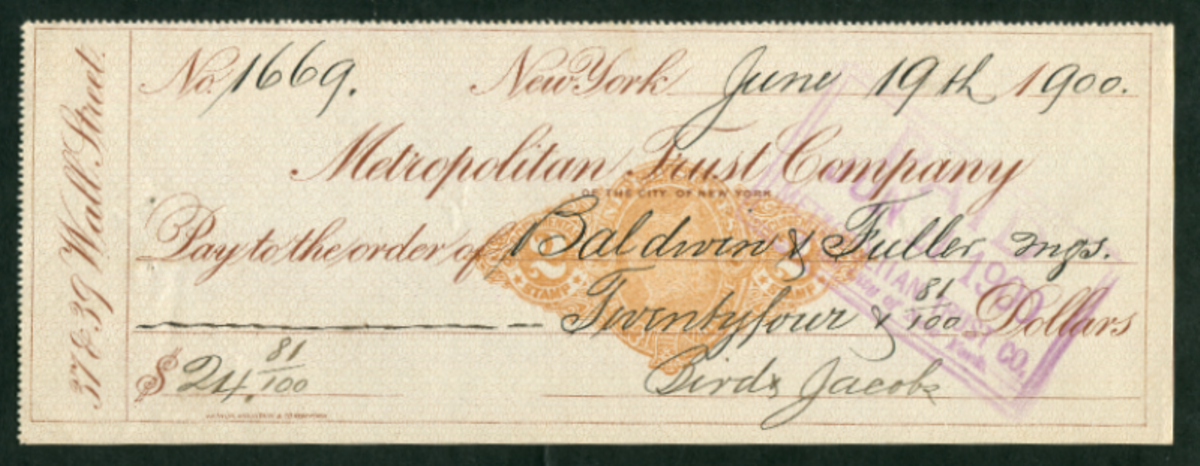 37 & 39 Wall Street.
No. 1669. New York June 19th 1900.
Metropolitan Trust Company
OF THE CITY OF NEW YORK
Pay to the order of Baldwin & Fuller mgs.
2 STAMP 2
Twentyfour & 81/100 Dollars
$ 24. 81/100 Bird & Jacobs
PAID
JUN 1900
TRUST CO.
York